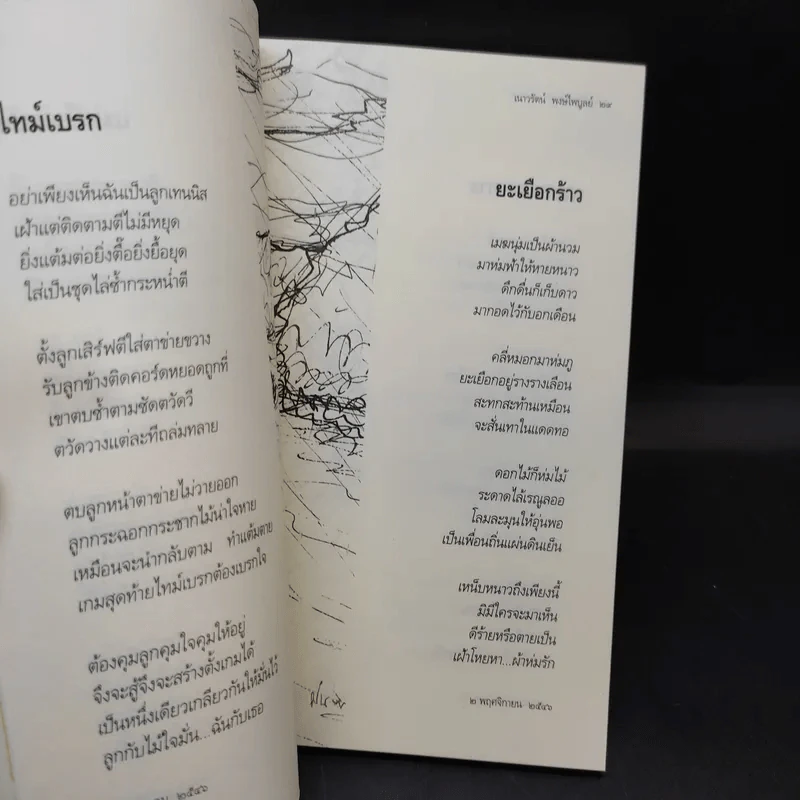 ไทม์เบรก
อย่าเพียงเห็นฉันเป็นลูกเทนนิส
เฝ้าแต่ติดตามตีไม่มีหยุด
ยิ่งแต้มต่อยิ่งตื๊อยิ่งยื้อยุด
ใส่เป็นชุดไล่ซ้ำกระหน่ำตี
ตั้งลูกเสิร์ฟตีใส่ตาข่ายขวาง
รับลูกข้างติดคอร์ดหยอดถูกที่
เขาตบซ้ำตามซัดตวัดวี
ตวัดวางแต่ละทีถล่มทลาย
ตบลูกหน้าตาข่ายไม่วายออก
ลูกกระฉอกกระชากไม้น่าใจหาย
เหมือนจะนำกลับตาม ทำแต้มตาย
เกมสุดท้ายไทม์เบรกต้องเบรกใจ
ต้องคุมลูกคุมใจคุมให้อยู่
จึงจะสู้จึงจะสร้างตั้งเกมได้
เป็นหนึ่งเดียวเกลียวกันให้มั่นไว้
ลูกกับไม้ใจมั่น...ฉันกับเธอ
๒๕๔๖
เนาวรัตน์ พงษ์ไพบูลย์ ๒๙
ยะเยือกร้าว
เมฆนุ่มเป็นผ้านวม
มาห่มฟ้าให้หายหนาว
ดึกดื่นก็เก็บดาว
มากอดไว้กับอกเดือน
คลี่หมอกมาห่มภู
ยะเยือกอยู่รางรางเลือน
สะทกสะท้านเหมือน
จะสั่นเทาในแดดทอ
ดอกไม้ก็ห่มไม้
ระดาดไล้เรณูลออ
โลมละมุนให้อุ่นพอ
เป็นเพื่อนถิ่นแผ่นดินเย็น
เหน็บหนาวถึงเพียงนี้
มิมีใครจะมาเห็น
ดีร้ายหรือตายเป็น
เฝ้าโหยหา...ผ้าห่มรัก
๒ พฤศจิกายน ๒๕๔๖